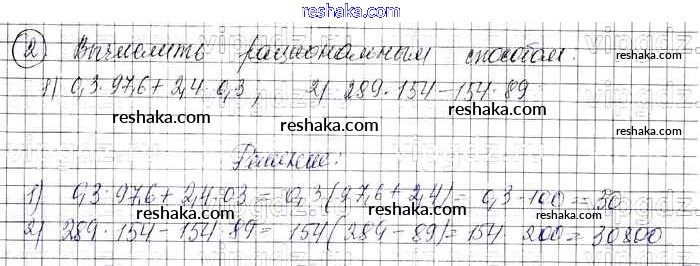 reshaka.com
② Вычислить рациональным способом.
1) 0,3·97,6 + 2,4·0,3, 2) 289·154 – 154·89
reshaka.com reshaka.com
Решение:
reshaka.com reshaka.com
1) 0,3·97,6 + 2,4·0,3 = 0,3(97,6 + 2,4) = 0,3·100 = 30
2) 289·154 – 154·89 = 154(289 – 89) = 154·200 = 30800
reshaka.com reshaka.com